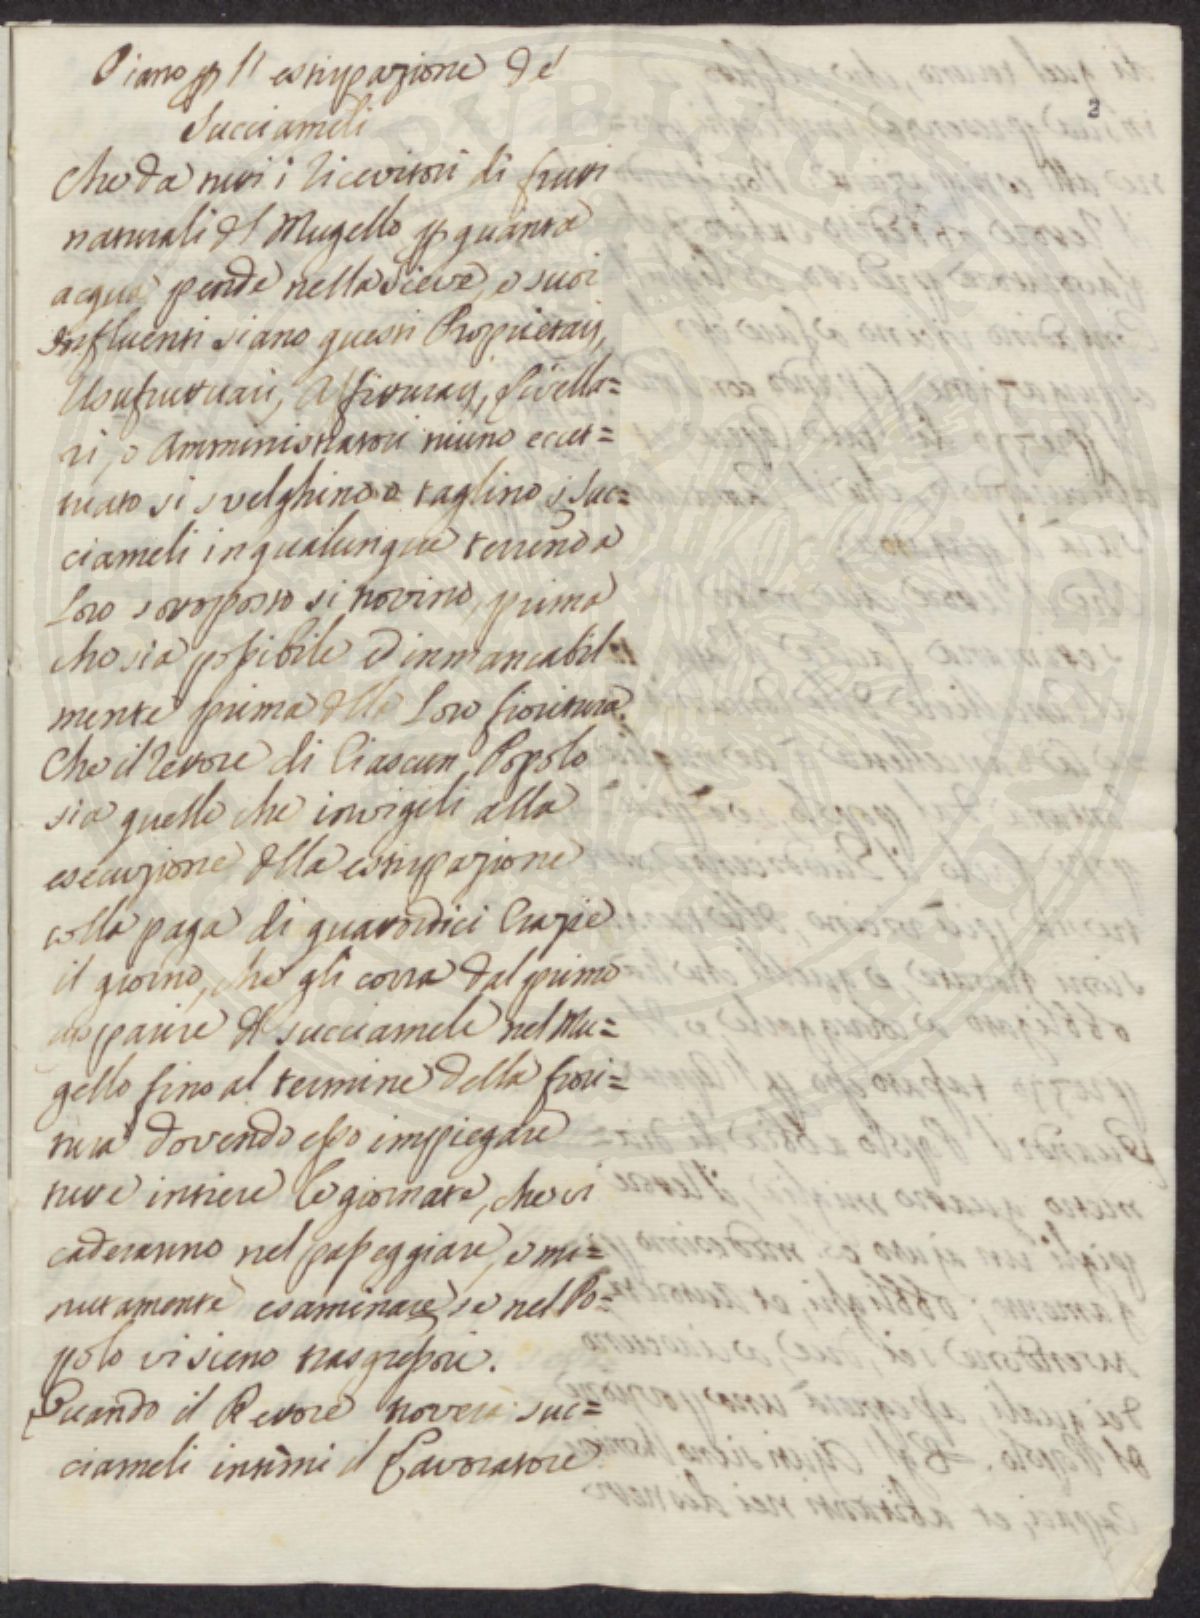 Piano p l'estirpazione de'
Succiameli
2
Che da tutti i Ricevitori di frutti
naturali dl Mugello p quanta
acqua pende nella Sieve, e suoi
Influenti siano questi Proprietarj,
Usufruttuarii, Affittuarj, Livella=
ri, o Amministratori niuno eccet=
tuato si svelghino o taglino i Suc=
ciameli in qualunque terreno a
Loro sottoposto si trovino, prima
che sia possibile ed inmancabil=
mente prima della Loro fioritura.
Che il Rettore di Ciascun Popolo
sia quello che invigili alla
esecuzione della estirpazione
colla paga di quattordici Crazie
il giorno, che gli corra dal primo
apparire dl succiamele nel Mu=
gello fino al termine della fiori=
tura dovendo esso impiegare
tutte intiere le giornate, che vi
caderanno nel passeggiare, e mi=
nutamente esaminare, se nel Po=
polo vi sieno trasgressori.
Quando il Rettore troverà suc=
ciameli intimi il Lavoratore